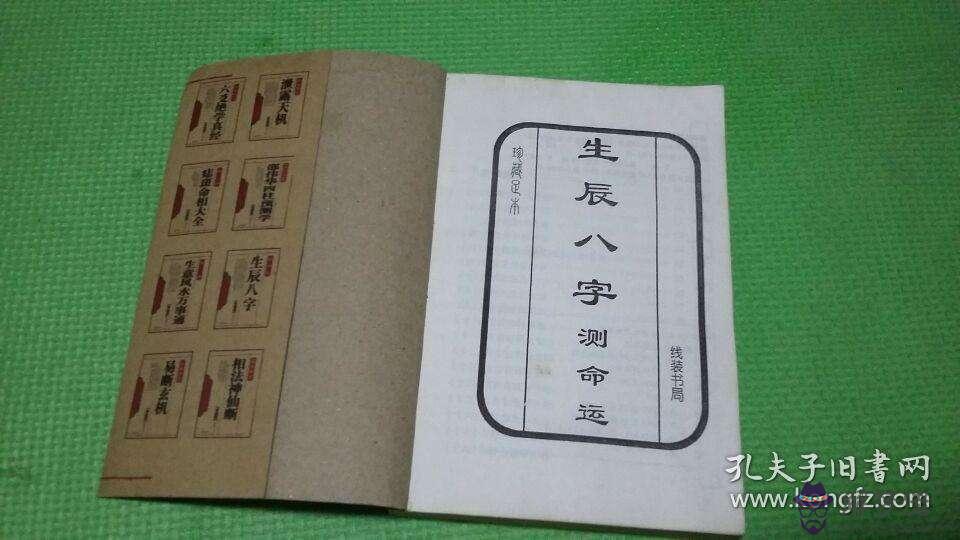 泄露天机
六爻绝学真经
邵伟华四柱预测学
痣斑命相大全
生辰八字
生意风水万事通
相法神仙断
易断玄机
线装书局
生辰八字测命运
珍藏足本
孔夫子旧书网
www.kongfz.com